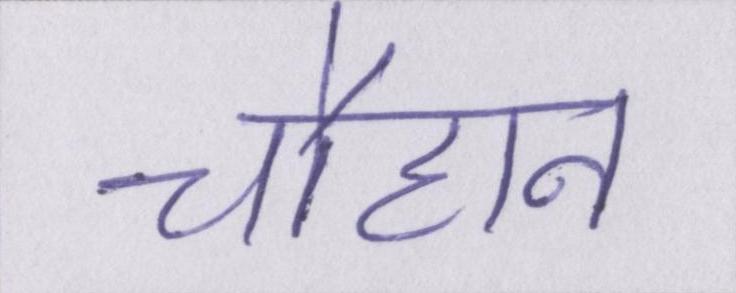 चौहान